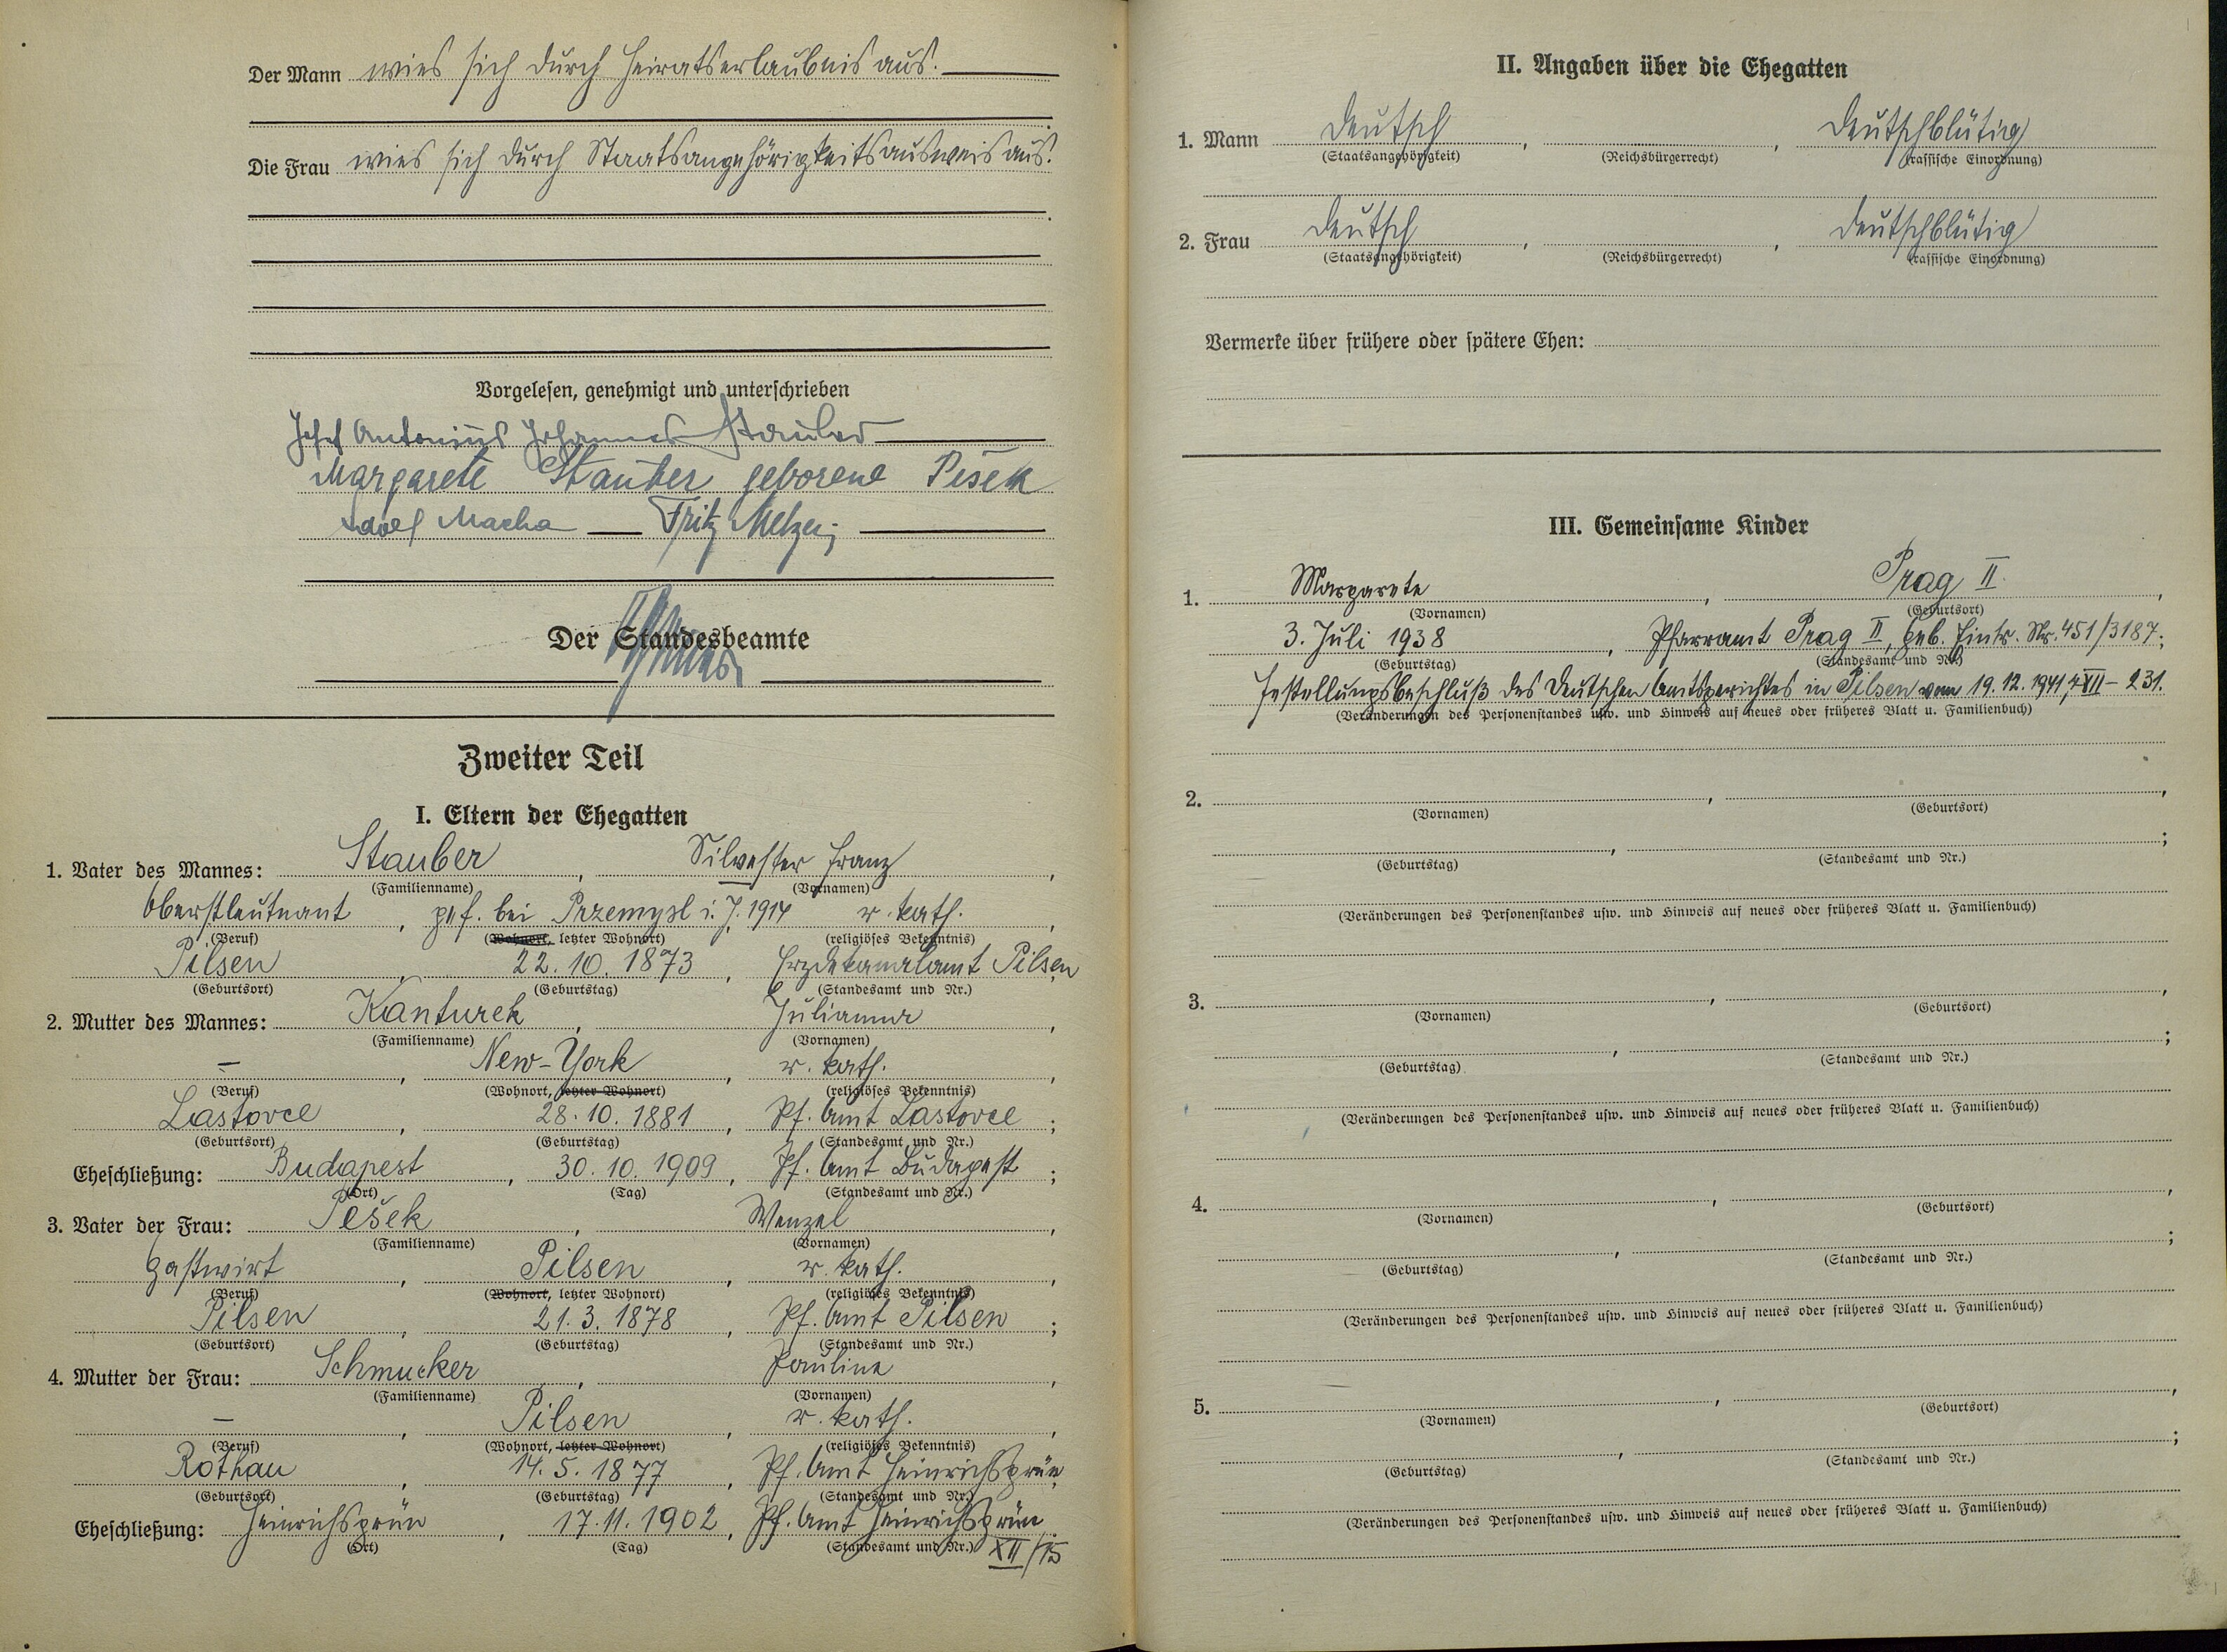 Der Mann wies sich durch Heiratserlaubnis aus.
Die Frau wies sich durch Staatsangehörigkeitsausweis aus.
Vorgelesen, genehmigt und unterschrieben
Josef Antonius Johannes Stauber
Margarete Stauber geborene Pešek
Adolf Macha — Fritz Metzer;
Der Standesbeamte
Zweiter Teil
I. Eltern der Ehegatten
1. Vater des Mannes: Stauber, Silvester Franz,
(Familienname) (Vornamen)
Oberstleutnant, gef. bei Przemysl i. J. 1914 r. kath.,
(Beruf) (Wohnort, letzter Wohnort) (religiöses Bekenntnis)
Pilsen, 22. 10. 1873, Erzdekanalamt Pilsen
(Geburtsort) (Geburtstag) (Standesamt und Nr.)
2. Mutter des Mannes: Kanturek, Julianna,
(Familienname) (Vornamen)
–, New-York, r. kath.,
(Beruf) (Wohnort, letzter Wohnort) (religiöses Bekenntnis)
Lastovce, 28. 10. 1881, Pf. Amt Lastovce;
(Geburtsort) (Geburtstag) (Standesamt und Nr.)
Eheschließung: Budapest, 30. 10. 1909, Pf. Amt Budapest;
(Ort) (Tag) (Standesamt und Nr.)
3. Vater der Frau: Pešek, Wenzel,
(Familienname) (Vornamen)
Gastwirt, Pilsen, r. kath.,
(Beruf) (Wohnort, letzter Wohnort) (religiöses Bekenntnis)
Pilsen, 21. 3. 1878, Pf. Amt Pilsen;
(Geburtsort) (Geburtstag) (Standesamt und Nr.)
4. Mutter der Frau: Schmucker, Pauline,
(Familienname) (Vornamen)
–, Pilsen, r. kath.,
(Beruf) (Wohnort, letzter Wohnort) (religiöses Bekenntnis)
Rothau, 14. 5. 1877, Pf. Amt Heinrichsgrün
(Geburtsort) (Geburtstag) (Standesamt und Nr.)
Eheschließung: Heinrichsgrün, 17. 11. 1902, Pf. Amt Heinrichsgrün
(Ort) (Tag) (Standesamt und Nr.) XII/15
II. Angaben über die Ehegatten
1. Mann deutsch, , deutschblütig
(Staatsangehörigkeit) (Reichsbürgerrecht) (rassische Einordnung)
2. Frau deutsch, , deutschblütig
(Staatsangehörigkeit) (Reichsbürgerrecht) (rassische Einordnung)
Vermerke über frühere oder spätere Ehen:
III. Gemeinsame Kinder
1. Margarete, Prag II,
(Vornamen) (Geburtsort)
3. Juli 1938, Pfarramt Prag II, Geb. Eintr. Nr. 451/3187;
(Geburtstag) (Standesamt und Nr.)
Festellungsbeschluß des Deutschen Amtsgerichtes in Pilsen vom 19. 12. 1941, XII – 231.
(Veränderungen des Personenstandes usw. und Hinweis auf neues oder früheres Blatt u. Familienbuch)
2. , ,
(Vornamen) (Geburtsort)
, ;
(Geburtstag) (Standesamt und Nr.)
(Veränderungen des Personenstandes usw. und Hinweis auf neues oder früheres Blatt u. Familienbuch)
3. , ,
(Vornamen) (Geburtsort)
, ;
(Geburtstag) (Standesamt und Nr.)
(Veränderungen des Personenstandes usw. und Hinweis auf neues oder früheres Blatt u. Familienbuch)
4. , ,
(Vornamen) (Geburtsort)
, ;
(Geburtstag) (Standesamt und Nr.)
(Veränderungen des Personenstandes usw. und Hinweis auf neues oder früheres Blatt u. Familienbuch)
5. , ,
(Vornamen) (Geburtsort)
, ;
(Geburtstag) (Standesamt und Nr.)
(Veränderungen des Personenstandes usw. und Hinweis auf neues oder früheres Blatt u. Familienbuch)